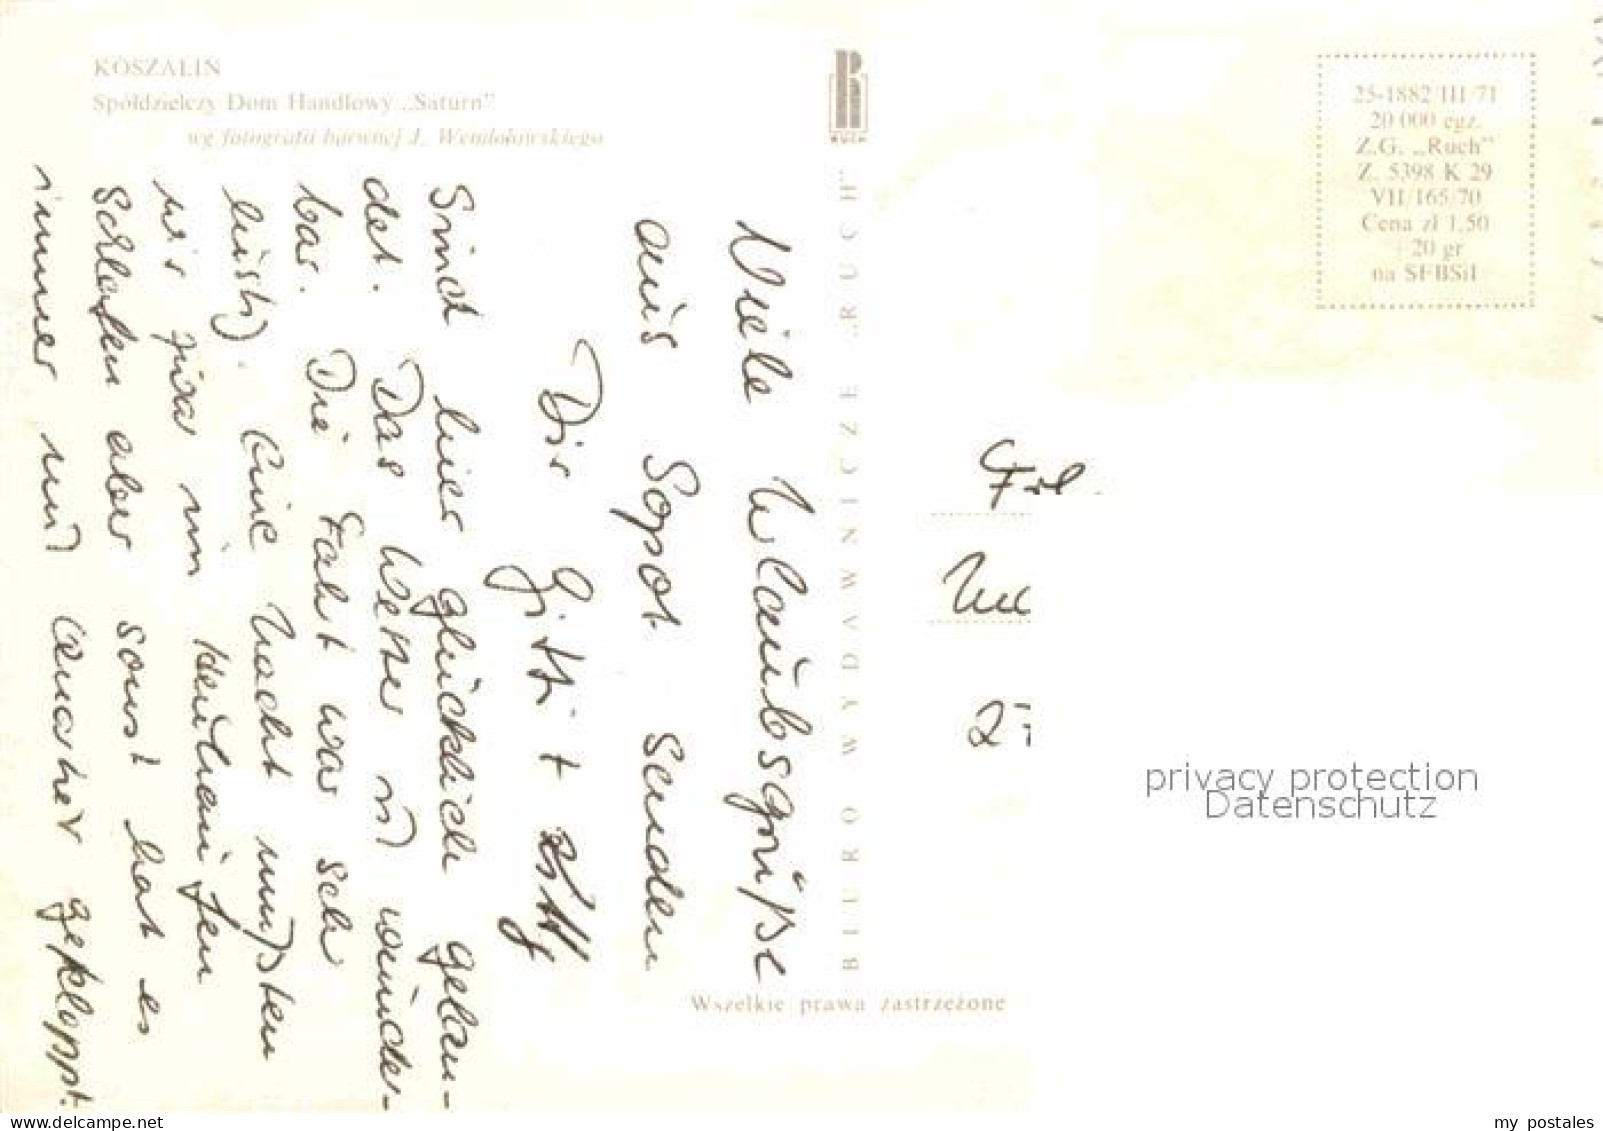 KOSZALIN
Spółdzielczy Dom Handlowy „Saturn”
wg fotografii barwnej J. Wendołowskiego
RUCH
BIURO WYDAWNICZE „RUCH”
25-1882/III/71
20 000 egz.
Z.G. „Ruch”
Z. 5398 K 29
VII/165/70
Cena zł 1,50
+20 gr
na SFBSiI
Viele Urlaubsgrüße
aus Sopot senden
Dir Gitti +
Sind hier glücklich gelan-
det. Das Wetter ist wunder-
bar. Die Fahrt war sehr
lustig. Eine Nacht mußten
wir zwar im
schlafen aber sonst hat es
immer mit geklappt.
Frl.
27
Wszelkie prawa zastrzeżone
privacy protection
Datenschutz
www.delcampe.net
my_postales